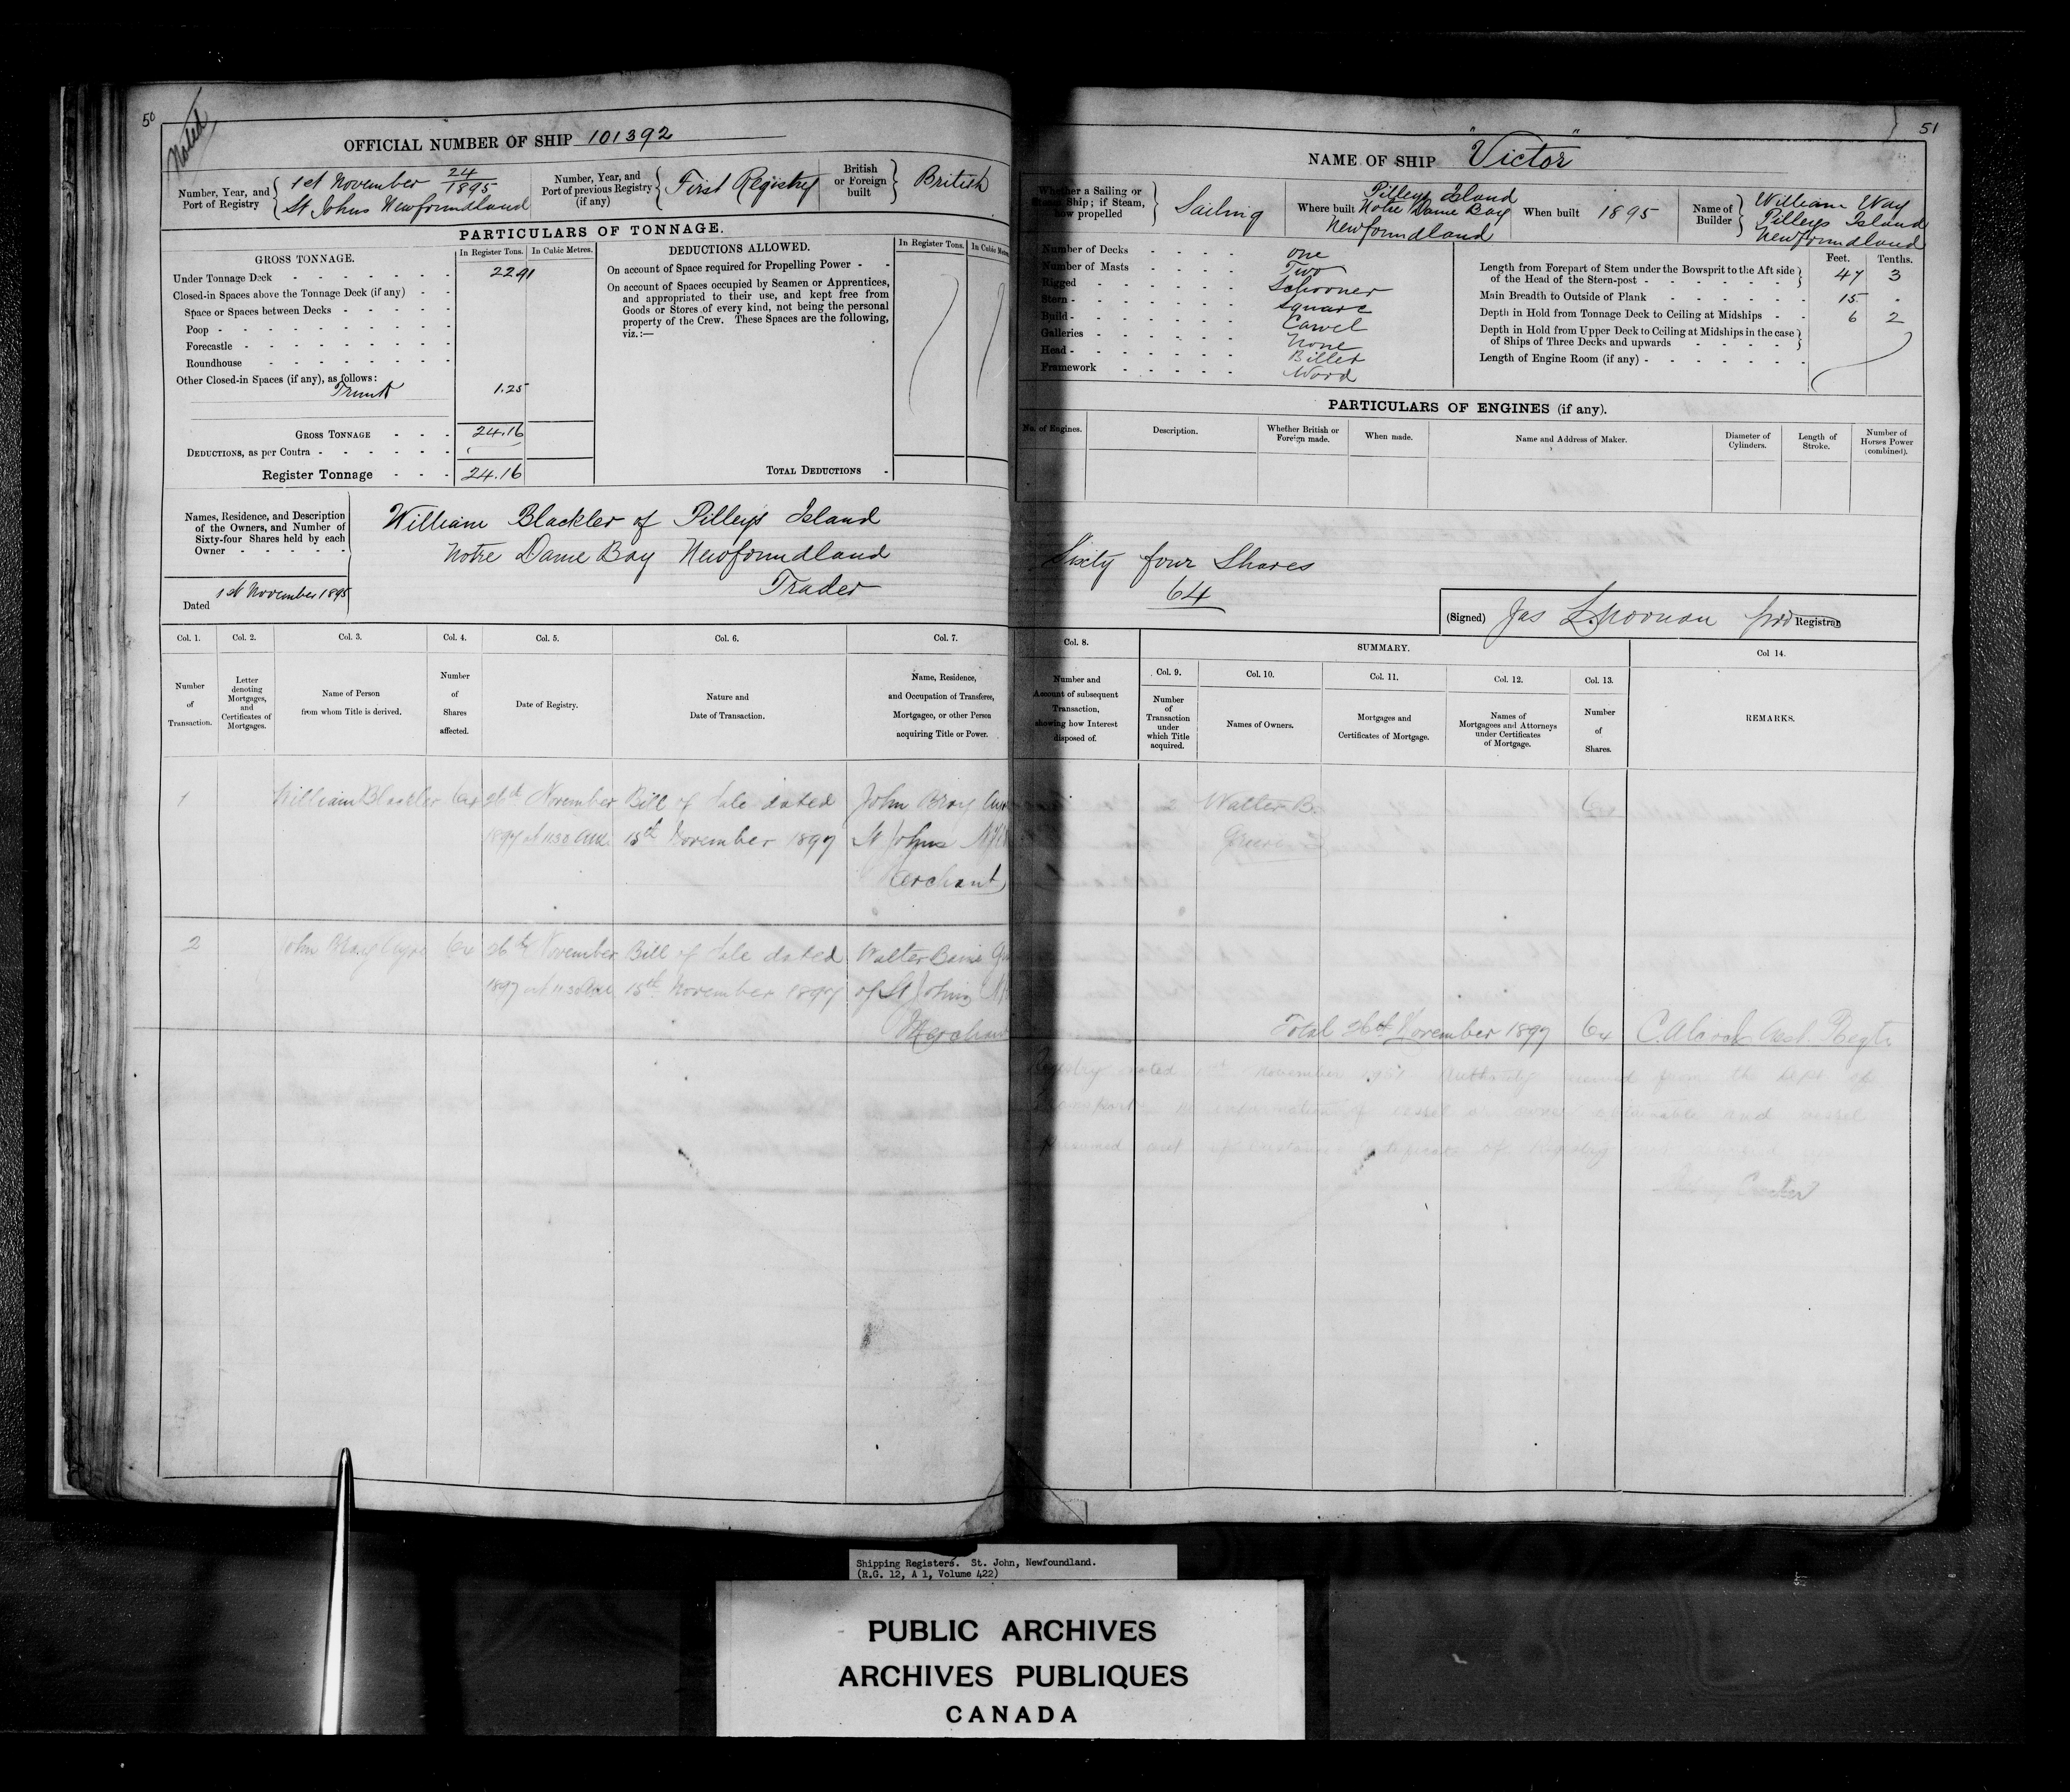 50
Noted
OFFICIAL NUMBER OF SHIP 101392
Number, Year, and Port of Registry
1st November 24/1895
St Johns Newfoundland
Number, Year, and Port of previous Registry (if any)
First Registry
British or Foreign built
British
PARTICULARS OF TONNAGE.
GROSS TONNAGE.
In Register Tons. In Cubic Metres.
Under Tonnage Deck 22.91
Closed-in Spaces above the Tonnage Deck (if any)
Space or Spaces between Decks
Poop
Forecastle
Roundhouse
Other Closed-in Spaces (if any), as follows:
Trunk 1.25
GROSS TONNAGE 24.16
DEDUCTIONS, as per Contra
Register Tonnage 24.16
DEDUCTIONS ALLOWED.
In Register Tons. In Cubic
On account of Space required for Propelling Power
On account of Spaces occupied by Seamen or Apprentices,
and appropriated to their use, and kept free from
Goods or Stores of every kind, not being the personal
property of the Crew. These Spaces are the following,
viz.:—
TOTAL DEDUCTIONS
Names, Residence, and Description
of the Owners, and Number of
Sixty-four Shares held by each
Owner
Dated 1st November 1895
William Blackler of Pilleys Island
Notre Dame Bay Newfoundland
Trader
Col. 1. Col. 2. Col. 3. Col. 4. Col. 5. Col. 6. Col. 7.
Number of Transaction.
Letter denoting Mortgages, and Certificates of Mortgages.
Name of Person from whom Title is derived.
Number of Shares affected.
Date of Registry.
Nature and Date of Transaction.
Name, Residence, and Occupation of Transferee, Mortgagee, or other Person acquiring Title or Power.
1 William Blackler 64 26th November Bill of Sale dated John Bray
1897 at 11.30 am 15th November 1897 St Johns
Merchant
2 John Bray Ayre 64 26th November Bill of Sale dated Walter Baine
1897 at 11.30 am 15th November 1897 of St Johns
Merchant
51
NAME OF SHIP "Victor"
Whether a Sailing or Steam Ship; if Steam, how propelled
Sailing
Where built
Pilleys Island
Notre Dame Bay
Newfoundland
When built 1895
Name of Builder
William Way
Pilleys Island
Newfoundland
Number of Decks One
Number of Masts Two
Rigged Schooner
Stern Square
Build Carvel
Galleries None
Head Billet
Framework Wood
Feet. Tenths.
Length from Forepart of Stem under the Bowsprit to the Aft side of the Head of the Stern-post 47 3
Main Breadth to Outside of Plank 15 .
Depth in Hold from Tonnage Deck to Ceiling at Midships 6 2
Depth in Hold from Upper Deck to Ceiling at Midships in the case of Ships of Three Decks and upwards
Length of Engine Room (if any)
PARTICULARS OF ENGINES (if any).
No. of Engines.
Description.
Whether British or Foreign made.
When made.
Name and Address of Maker.
Diameter of Cylinders.
Length of Stroke.
Number of Horses Power (combined).
Sixty four Shares
64
(Signed) Jas L. Noonan Registrar
Col. 8.
SUMMARY.
Col. 9. Col. 10. Col. 11. Col. 12. Col. 13. Col 14.
Number and Account of subsequent Transaction, showing how Interest disposed of.
Number of Transaction under which Title acquired.
Names of Owners.
Mortgages and Certificates of Mortgage.
Names of Mortgagees and Attorneys under Certificates of Mortgage.
Number of Shares.
REMARKS.
2 Walter B. 64
Grieve
Total 26th November 1897 64 Asst. Regtr
Registry noted November Authority received from the Dept of
Transport. No information of vessel or owner obtainable and vessel
presumed out of existence Certificate of Registry not
Shipping Registers. St. John, Newfoundland.
(R.G. 12, A 1, Volume 422)
PUBLIC ARCHIVES
ARCHIVES PUBLIQUES
CANADA